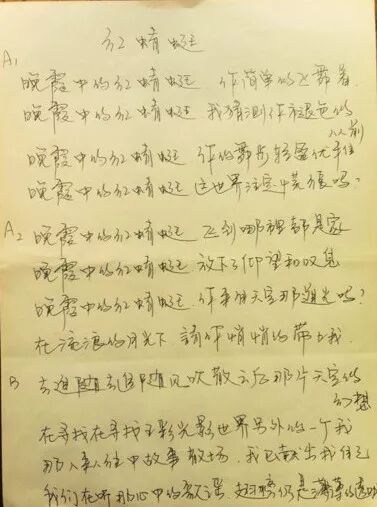 红蜻蜓
A1
晚霞中的红蜻蜓 你简单的飞舞着
晚霞中的红蜻蜓 我猜测你褪色的
从前
晚霞中的红蜻蜓 你的舞步轻盈优雅
晚霞中的红蜻蜓 这世界注定慌张吗？
A2 晚霞中的红蜻蜓 飞到哪裡都是家
晚霞中的红蜻蜓 放下了仰望和叹息
晚霞中的红蜻蜓 你来自天空那道光吗？
在流浪的月光下 請你悄悄的带上我
B 去追随去追随风吹散云后那片天空的
幻想
在寻找在寻找五彩光影世界另外的一个我
那人来人往中故事散场 我已献出我自己
我们在听那心中的歌谣 翅膀仍是薄薄的透明